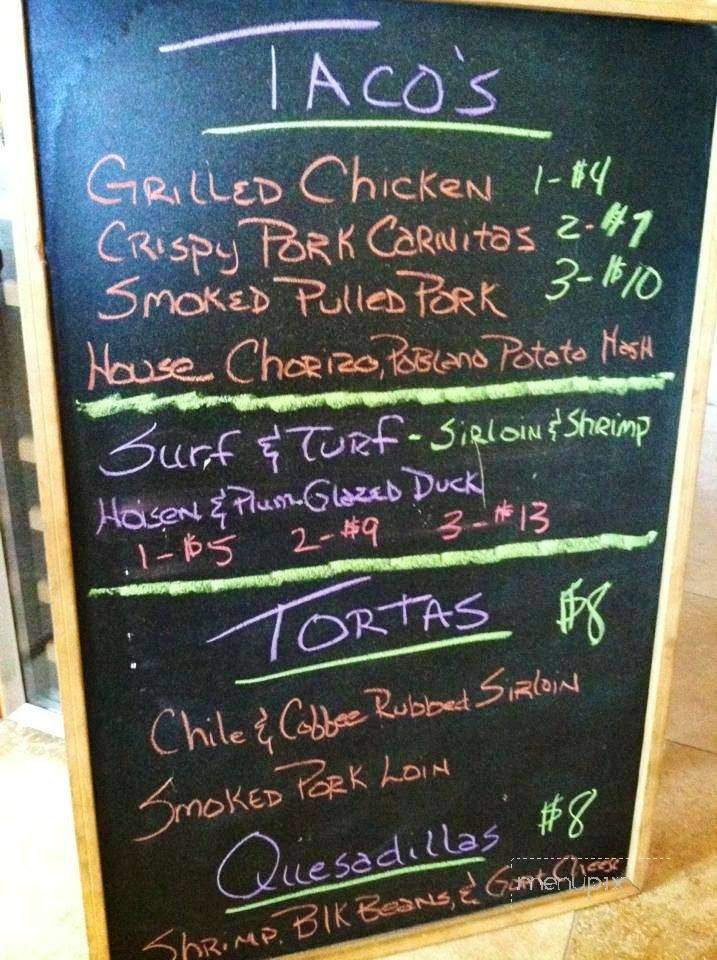 TACO'S
GRILLED CHICKEN 1-$4
CRISPY PORK CARNITAS 2-$7
SMOKED PULLED PORK 3-$10
HOUSE CHORIZO, POBLANO POTATO HASH
SURF & TURF - SIRLOIN & SHRIMP
HOISEN & PLUM GLAZED DUCK
1-$5 2-$9 3-$13
TORTAS $8
CHILE & COFFEE RUBBED SIRLOIN
SMOKED PORK LOIN
QUESADILLAS $8
SHRIMP, BLK BEANS, & GOAT CHEESE
menupix